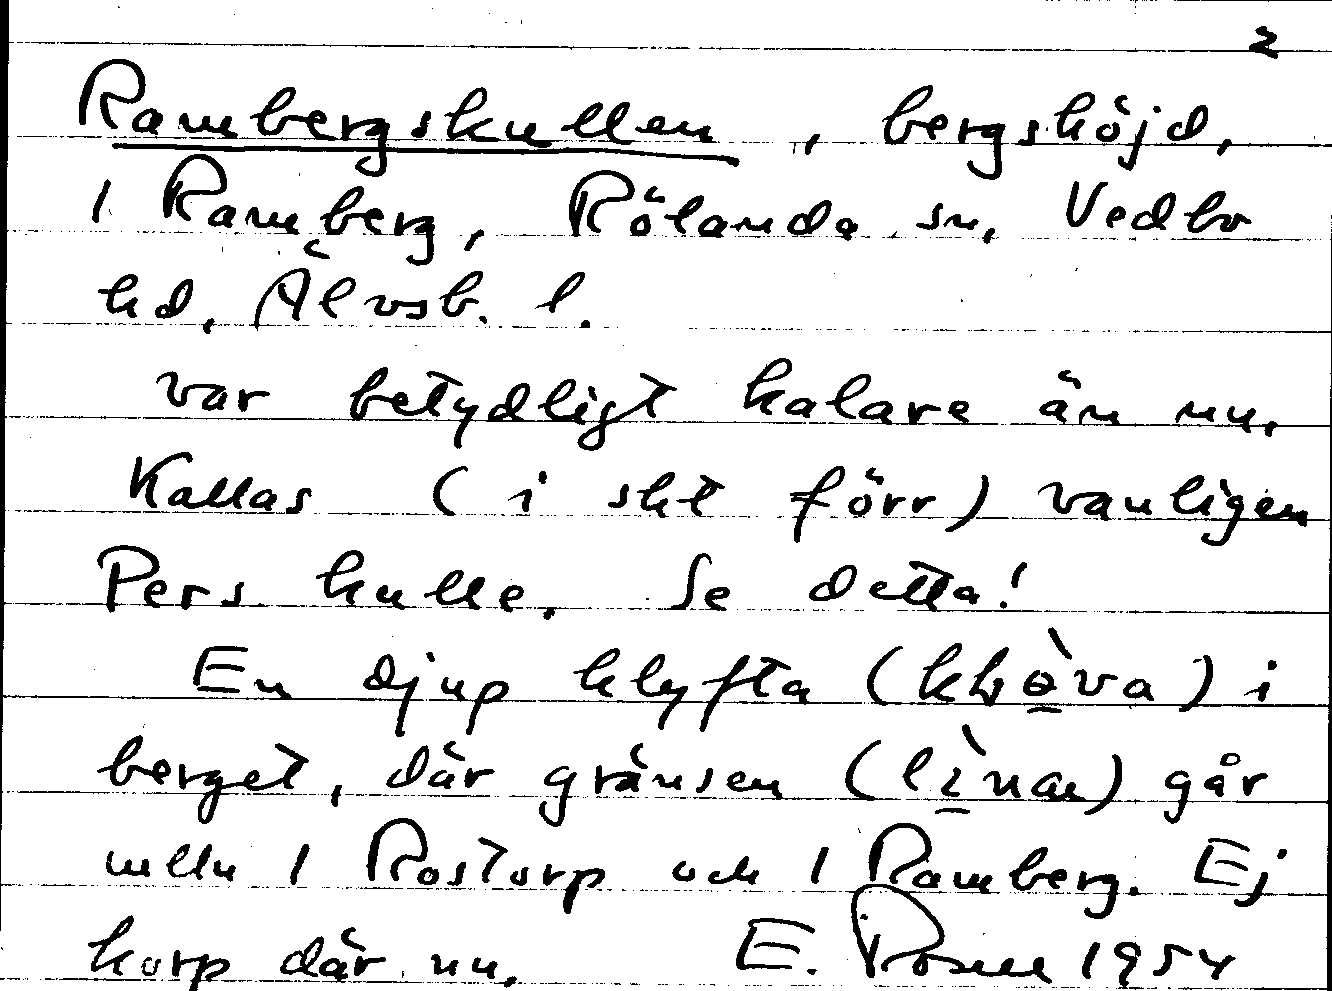 2
Rambergskullen, bergshöjd,
1 Ramberg, Rölanda sn, Vedbo
hd, Älvsb. l.
var betydligt kalare än nu.
Kallas (i sht förr) vanligen
Pers kulle. Se detta!
En djup klyfta (
) i
berget, där gränsen (lìnan) går
melln 1 Rostorp och 1 Ramberg. Ej
korp där nu. E. Rosell 1954